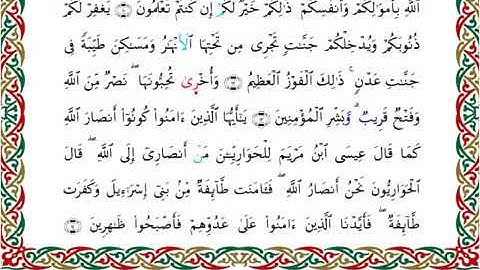 ٱللَّهِ بِأَمْوَٰلِكُمْ وَأَنفُسِكُمْ ۚ ذَٰلِكُمْ خَيْرٌ لَّكُمْ إِن كُنتُمْ تَعْلَمُونَ ۝ يَغْفِرْ لَكُمْ
ذُنُوبَكُمْ وَيُدْخِلْكُمْ جَنَّٰتٍ تَجْرِى مِن تَحْتِهَا ٱلْأَنْهَٰرُ وَمَسَٰكِنَ طَيِّبَةً فِى
جَنَّٰتِ عَدْنٍ ۚ ذَٰلِكَ ٱلْفَوْزُ ٱلْعَظِيمُ ۝ وَأُخْرَىٰ تُحِبُّونَهَا ۖ نَصْرٌ مِّنَ ٱللَّهِ
وَفَتْحٌ قَرِيبٌ ۗ وَبَشِّرِ ٱلْمُؤْمِنِينَ ۝ يَٰٓأَيُّهَا ٱلَّذِينَ ءَامَنُوا۟ كُونُوٓا۟ أَنصَارَ ٱللَّهِ
كَمَا قَالَ عِيسَى ٱبْنُ مَرْيَمَ لِلْحَوَارِيِّـۧنَ مَنْ أَنصَارِىٓ إِلَى ٱللَّهِ ۖ قَالَ
ٱلْحَوَارِيُّونَ نَحْنُ أَنصَارُ ٱللَّهِ ۖ فَـَٔامَنَت طَّآئِفَةٌ مِّنۢ بَنِىٓ إِسْرَٰٓءِيلَ وَكَفَرَت
طَّآئِفَةٌ ۖ فَأَيَّدْنَا ٱلَّذِينَ ءَامَنُوا۟ عَلَىٰ عَدُوِّهِمْ فَأَصْبَحُوا۟ ظَٰهِرِينَ ۝